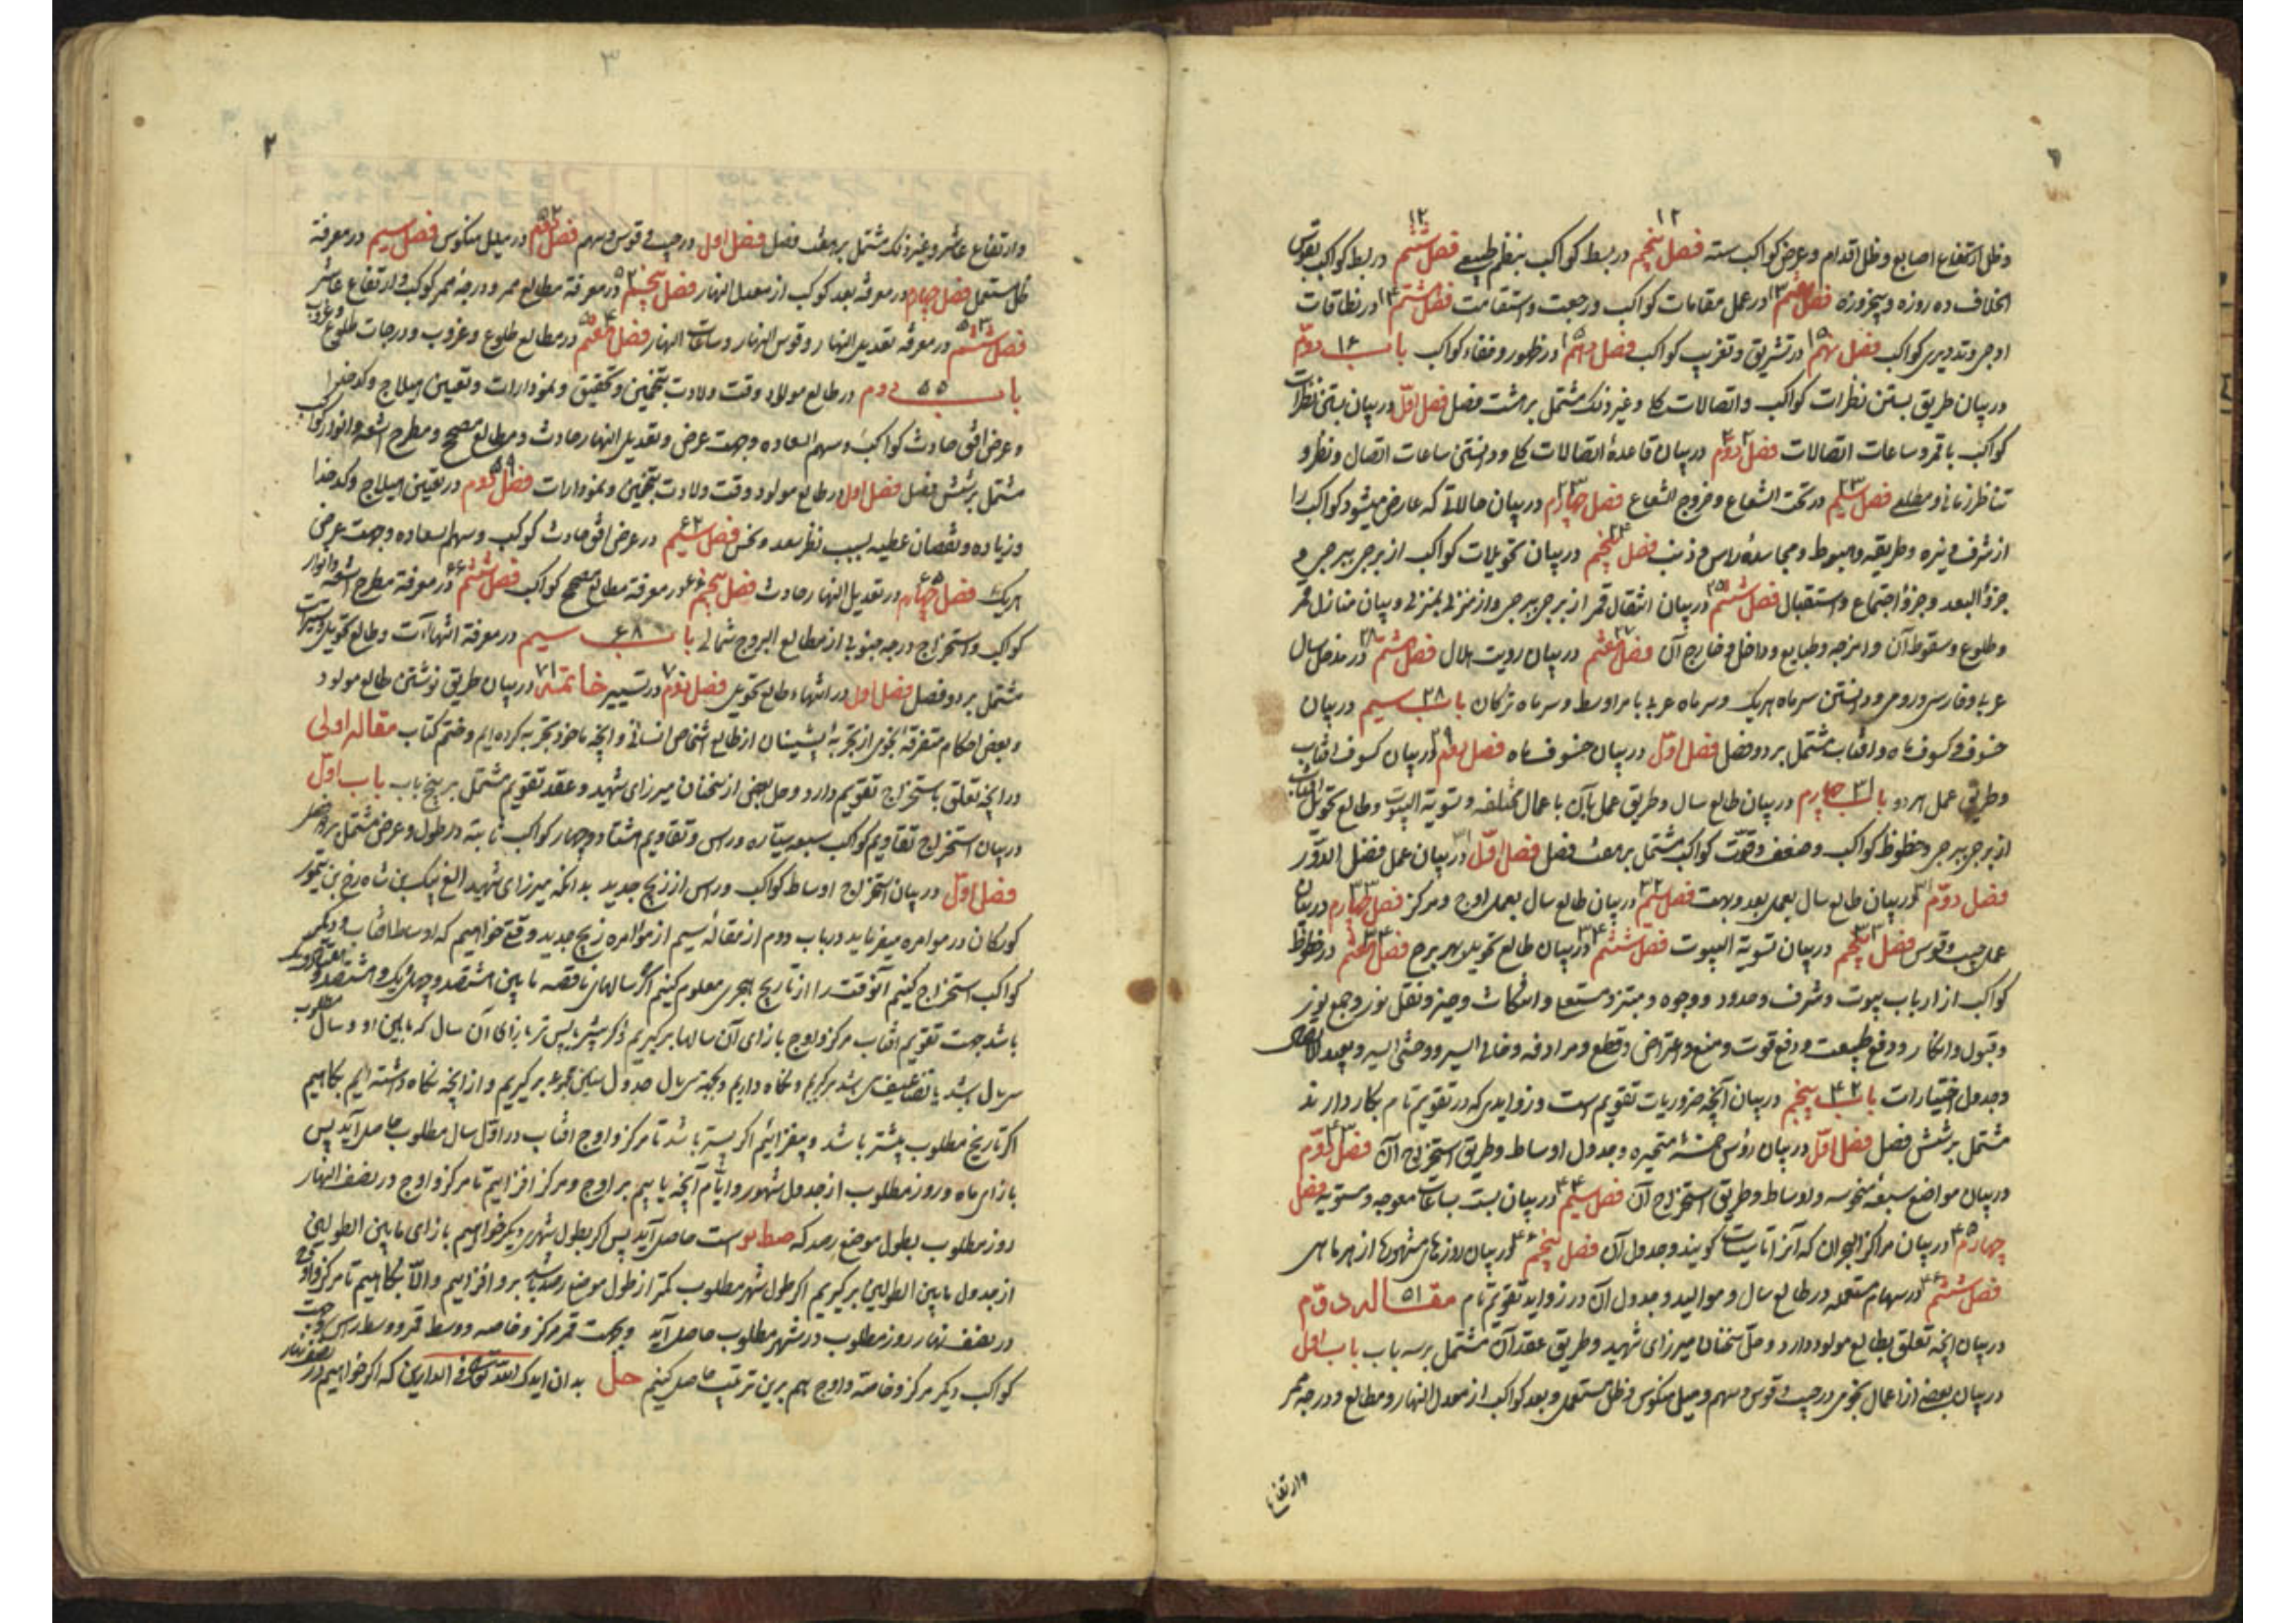 ۱۲ ۱۲
وظل ارتفاع اصابع وظل اقدام وعرض کواکب سته فصل پنجم در بسط کواکب بنظم طبیعی فصل ششم در بسط کواکب بقوس
اختلاف ده روزه و پنجروزه فصل هفتم ۱۳ در عمل مقامات کواکب و رجعت و استقامت فصل هشتم ۱۴ در نطاقات
اوجی و تدویری کواکب فصل نهم ۱۵ در تشریق و تغریب کواکب فصل دهم ۱۵ در ظهور و خفاء کواکب باب ۱۶ دوم
در بیان طریق بستن نظرات کواکب و اتصالات کلی و غیر ذلک مشتمل بر هشت فصل فصل اول در بیان بستن نظرات
کواکب با قمر و ساعات اتصالات فصل دوم در بیان قاعدۀ اتصالات کلی و دانستن ساعات اتصال و نظر و
تناظر زمانی و مطلعی فصل سیم ۲۳ در تحت الشعاع و خروج الشعاع فصل چهارم ۲۳ در بیان حالاتی که عارض میشود کواکب را
از شرف و نیره و طریقه و هبوط و مجاسدۀ راس و ذنب فصل پنجم ۲۴ در بیان تحویلات کواکب از برجی ببرجی و
جزؤ البعد و جزؤ اجتماع و استقبال فصل ششم ۲۵ در بیان انتقال قمر از برجی ببرجی و از منزلی بمنزلی و بیان منازل قمر
و طلوع و سقوط آن و امزجه و طبایع و داخل و خارج آن فصل هفتم ۲۷ در بیان رویت هلال فصل هشتم ۲۸ در مدخل سال
عربی و فارسی و رومی و دانستن سر ماه هر یک و سر ماه عربی بامر اوسط و سر ماه ترکان باب ۲۸ سیم در بیان
خسوف و کسوف ماه و آفتاب مشتمل بر دو فصل فصل اول در بیان خسوف ماه فصل دوم ۲۹ در بیان کسوف آفتاب
و طریق عمل هر دو باب ۳۱ چهارم در بیان طالع سال و طریق عمل بآن باعمال مختلفه و تسویة البیوت و طالع تحویل آفتاب
از برجی ببرجی و حظوظ کواکب و ضعف و قوت کواکب مشتمل بر هفت فصل فصل اول ۳۱ در بیان عمل فضل الدور
فصل دوم ۳۱ در بیان طالع سال بعمل بعد و بهت فصل سیم ۳۲ در بیان طالع سال بعمل اوج و مرکز فصل چهارم ۳۳ در بیان
عمل جیب و قوس فصل پنجم ۳۳ در بیان تسویة البیوت فصل ششم ۳۴ در بیان طالع تحویل بهر برج فصل هفتم ۳۴ در حظوظ
کواکب از ارباب بیوت و شرف و حدود و وجوه و مبتز و مستعلی و امکانات و حیز و نقل نور و جمع نور
و قبول و انکار و دفع طبیعت و دفع قوت و منع و اعتراض و قطع و مرادفه و خالی السیر و وحشی السیر و بعید الاتصال
و جدول اختیارات باب ۴۲ پنجم در بیان آنچه ضروریات تقویم است و زوایدی که در تقویم تام بکار دارند
مشتمل بر شش فصل فصل اول در بیان رؤس خمسۀ متحیره و جدول اوساط و طریق استخراج آن فصل دوم ۴۳
در بیان مواضع سبعۀ منحوسه و اوساط و طریق استخراج آن فصل سیم ۴۴ در بیان بست بساعات معوجه و مستویه فصل
چهارم ۴۵ در بیان مراکز البحران که آنرا تاسیسات گویند و جدول آن فصل پنجم ۴۶ در بیان روزهای مشهوره از هر ماهی
فصل ششم ۴۶ در سهام مستعمله در طالع سال و موالید و جدول آن در زواید تقویم تام مقاله ۵۱ دوم
در بیان آنچه تعلق بطالع مولود دارد و حل سخنان میرزای شهید و طریق عقد آن مشتمل بر سه باب باب اول
در بیان بعضی از اعمال نجومی در جیب و قوس و سهم و میل منکوس و ظل مستعمل و بعد کواکب از معدل النهار و مطالع و درجه ممر
وارتفاع
۳
۲
وارتفاع عاشر و غیر ذلک مشتمل بر هفت فصل فصل اول در جیب و قوس و سهم فصل دوم ۵۲ در میل منکوس فصل سیم در معرفة
ظل مستعمل فصل چهارم در معرفة بعد کوکب از معدل النهار فصل پنجم ۵۲ در معرفة مطالع ممر و درجه ممر کوکب و ارتفاع عاشر
فصل ششم ۵۳ در معرفة تعدیل النهار و قوس النهار و ساعات النهار فصل هفتم ۵۴ در مطالع طلوع و غروب و درجات طلوع و غروب
باب ۵۵ دوم در طالع مولاد وقت ولادت بتخمین و تحقیق و نمودارات و تعیین هیلاج و کدخدا
و عرض افق حادث کواکب و سهم السعاده و جهت عرض و تعدیل النهار حادث و مطالع مصحح و مطرح اشعه و انوار کواکب
مشتمل بر شش فصل فصل اول در طالع مولود وقت ولادت بتخمین و نمودارات فصل دوم ۵۹ در تعیین هیلاج و کدخدا
و زیاده و نقصان عطیه بسبب نظر سعد و نحس فصل سیم ۶۲ در عرض افق حادث کوکب و سهم السعاده و جهت عرض
هر یک فصل چهارم ۶۵ در تعدیل النهار حادث فصل پنجم ۶۶ در معرفة مطالع مصحح کواکب فصل ششم ۶۶ در معرفة مطرح اشعه و انوار
کواکب و استخراج درجه جنوبی از مطالع البروج شمالی باب ۶۸ سیم در معرفة انتهاآت و طالع تحویل و تسییرات
مشتمل بر دو فصل فصل اول در انتهاء و طالع تحویل فصل دوم ۷۰ در تسییر خاتمه ۷۱ در بیان طریق نوشتن طالع مولود
و بعضی احکام متفرقۀ نجومی از تجربۀ پیشینان از طالع اشخاص انسانی و آنچه ماخوذ تجربه کرده ایم و ختم کتاب مقاله اولی
در آنچه تعلق باستخراج تقویم دارد و حل بعضی از سخنان میرزای شهید و عقد تقویم مشتمل بر پنج باب باب اول
در بیان استخراج تقاویم کواکب سبعه سیاره و راس و تقاویم هشتاد و چهار کواکب ثابته در طول و عرض مشتمل بر ده فصل
فصل اول در بیان استخراج اوساط کواکب و راس از زیج جدید بدانکه میرزای شهید الغ بیک بن شاه رخ بن تیمور
کورکان در موامره میفرماید در باب دوم از مقالۀ سیم از موامره زیج جدید وقتی خواهیم که اوساط آفتاب و دیگر
کواکب استخراج کنیم آنوقت را از تاریخ هجری معلوم کنیم اگر سالهای ناقصه ما بین هشتصد و چهل و یک و هشتصد و
باشد جهت تقویم آفتاب مرکز و اوج بازای آن سالها برگیریم و اگر پیشتر یا پس تر بازای آن سال که ما بین او و سال مطلوب
سی سال باشد یا تضاعیف سی باشد برگیریم و نگاه داریم و بجهة سی سال جدول سنین مجموعه برگیریم و از آنچه نگاه داشته ایم بکاهیم
اگر تاریخ مطلوب پیشتر باشد و بیفزائیم اگر پستر باشد تا مرکز و اوج آفتاب در اول سال مطلوب حاصل آید پس
بازای ماه و روز مطلوب از جدول شهور و ایام آنچه یابیم بر اوج و مرکز افزائیم تا مرکز و اوج در نصف النهار
روز مطلوب بطول موضع رصد که صطلو است حاصل آید پس اگر بطول شهری دیگر خواهیم بازای ما بین الطولین
از جدول ما بین الطولین برگیریم اگر طول شهر مطلوب کمتر از طول موضع رصد باشد برو افزائیم و الا بکاهیم تا مرکز و اوج
در نصف نهار روز مطلوب در شهر مطلوب حاصل آید و جهت قمر مرکز و خاصه و وسط قمر و وسط راس و جهت
کواکب دیگر مرکز و خاصه و اوج هم برین ترتیب حاصل کنیم حل بدان ایدک الله تعالی فی الدارین که اگر خواهیم در نصف نهار